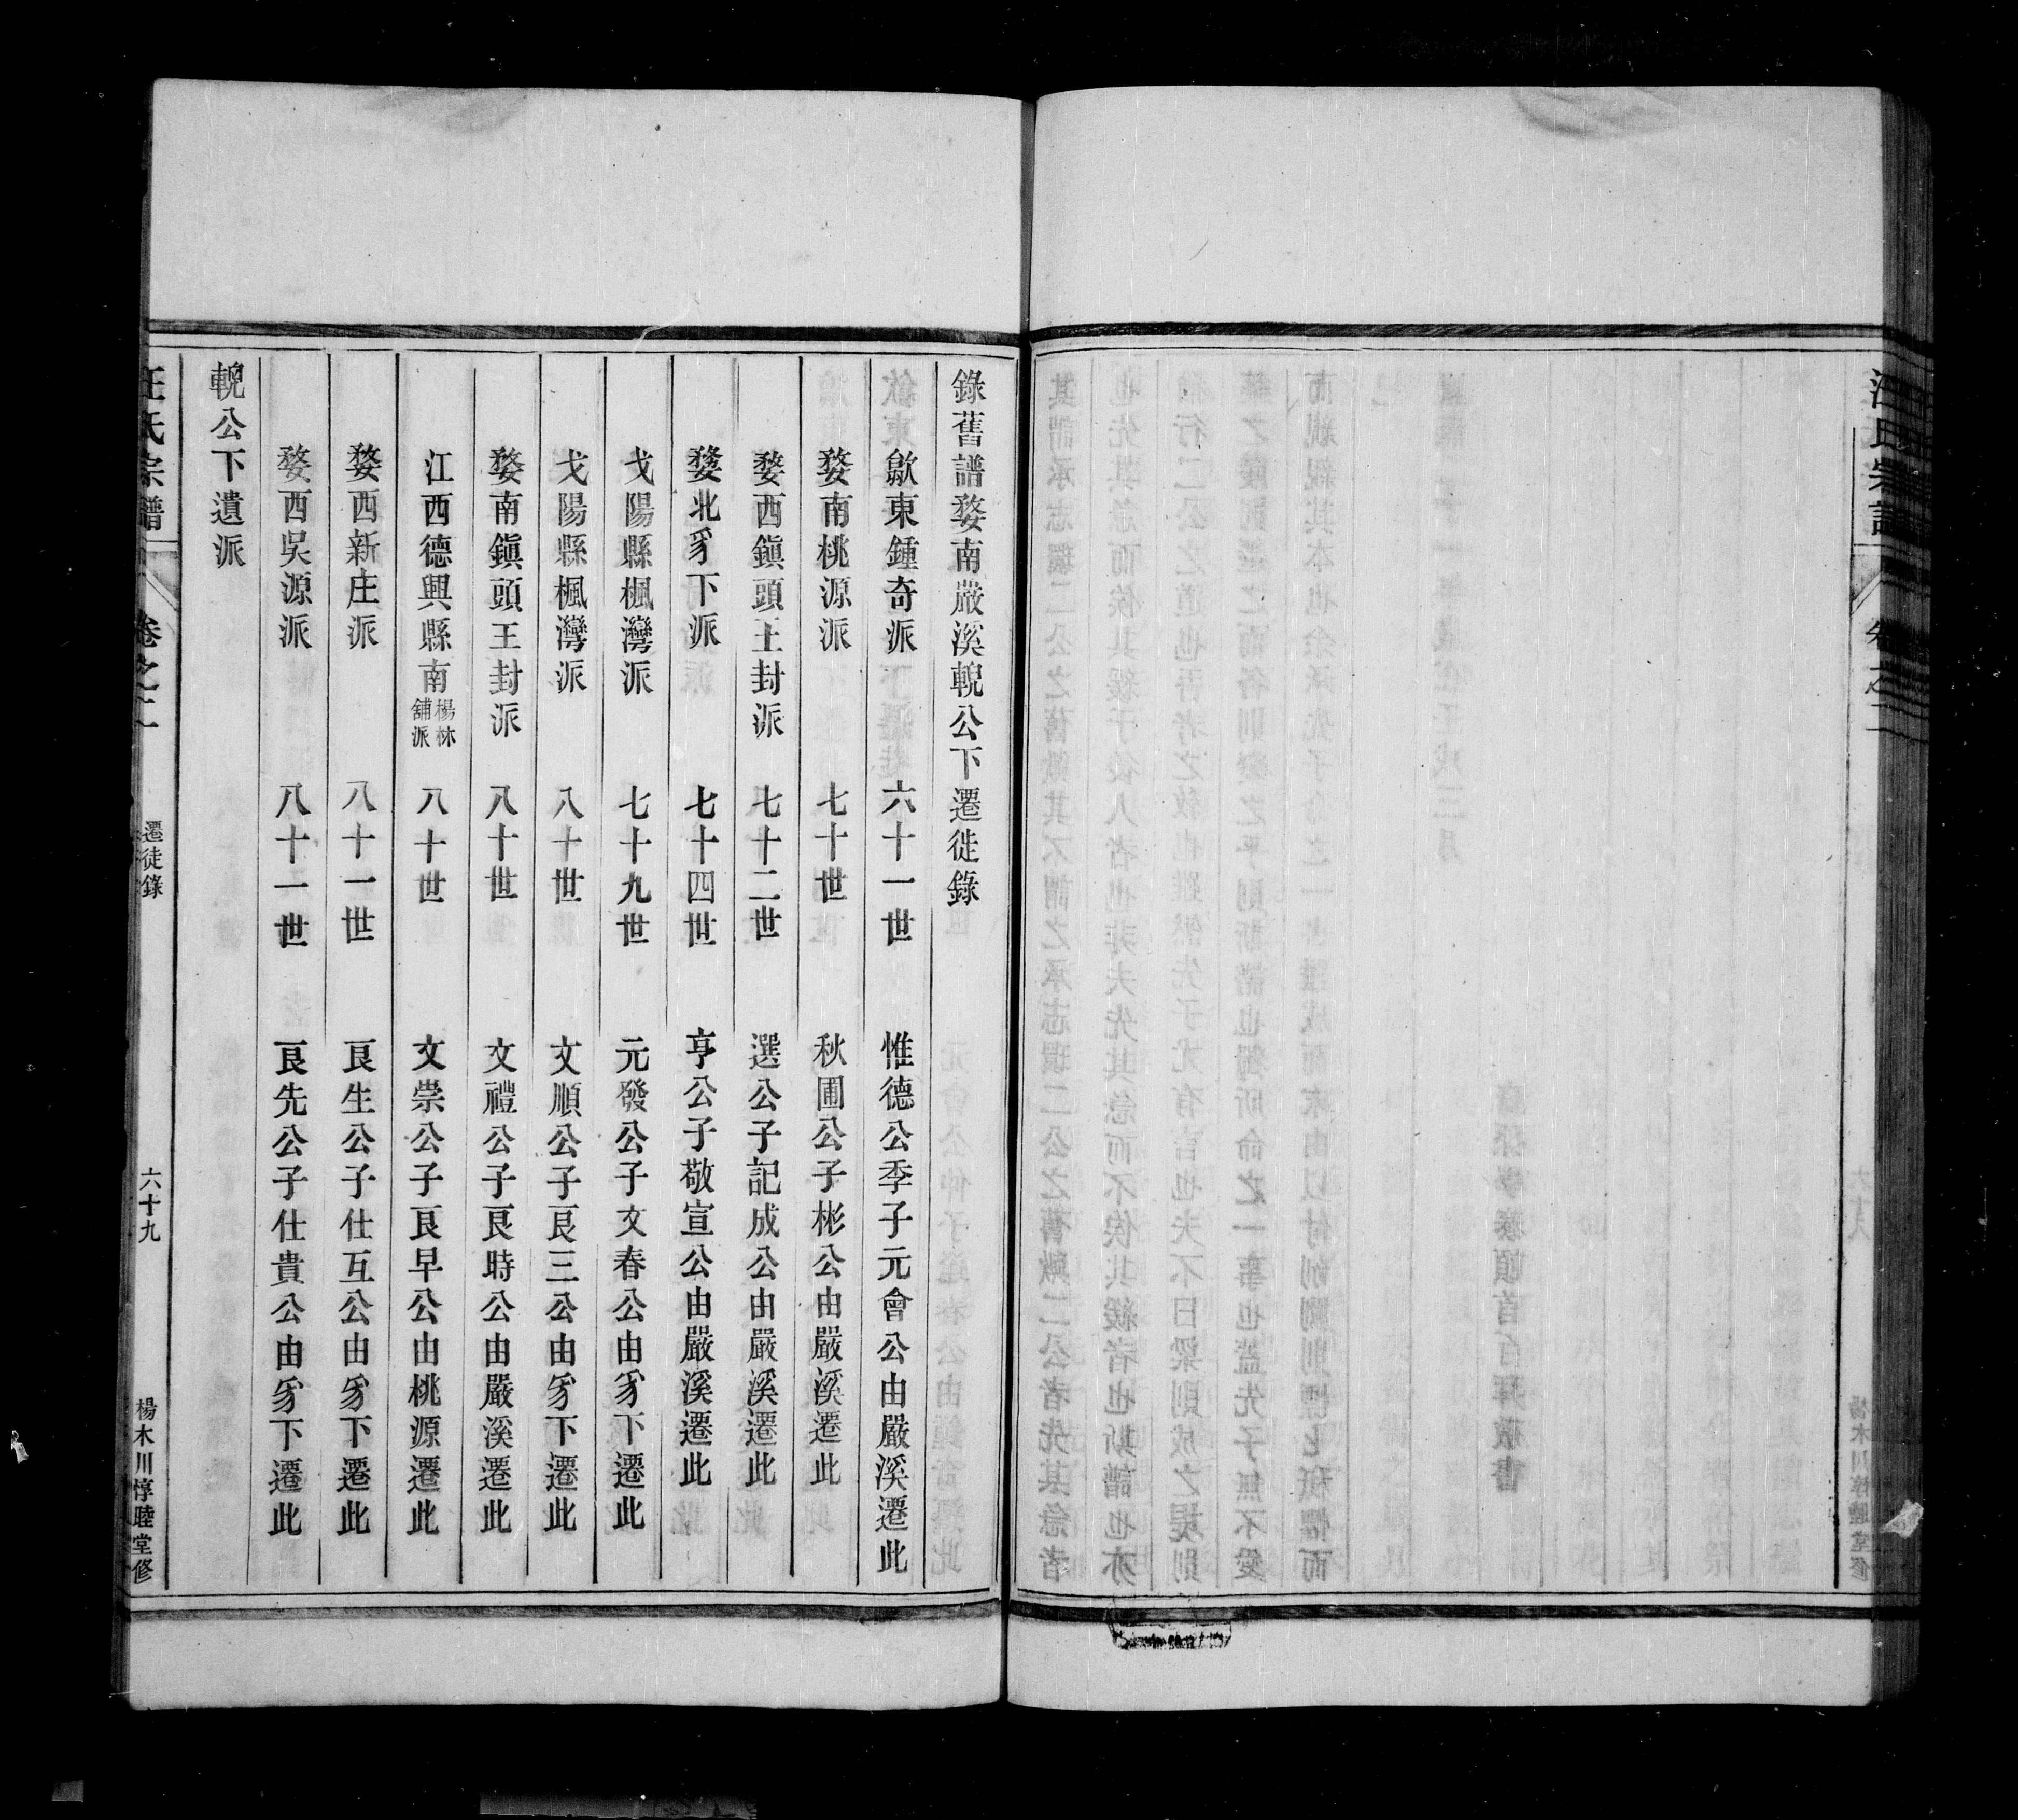 汪氏宗譜
卷之二
錄舊譜婺南嚴溪輗公下遷徙錄
歙東鍾奇派 六十一世 惟德公季子元會公由嚴溪遷此
婺南桃源派 七十世 秋圃公子彬公由嚴溪遷此
婺西鎭頭王封派 七十二世 選公子記成公由嚴溪遷此
婺北豸下派 七十四世 亨公子敬宣公由嚴溪遷此
戈陽縣楓灣派 七十九世 元發公子文春公由豸下遷此
戈陽縣楓灣派 八十世 文順公子良三公由豸下遷此
婺南鎭頭王封派 八十世 文禮公子良時公由嚴溪遷此
江西德興縣南楊林舖派 八十世 文崇公子良早公由桃源遷此
婺西新庄派 八十一世 良生公子仕互公由豸下遷此
婺西吳源派 八十一世 良先公子仕貴公由豸下遷此
輗公下遺派
汪氏宗譜 卷之二 遷徙錄 六十九 楊木川惇睦堂修